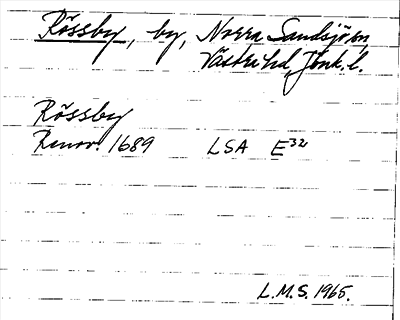 Rössby, by, Norra Sandsjö sn,
Västra hd, Jönk. l.
Rössby
Renov. 1689 LSA E32
L.M.S. 1965.